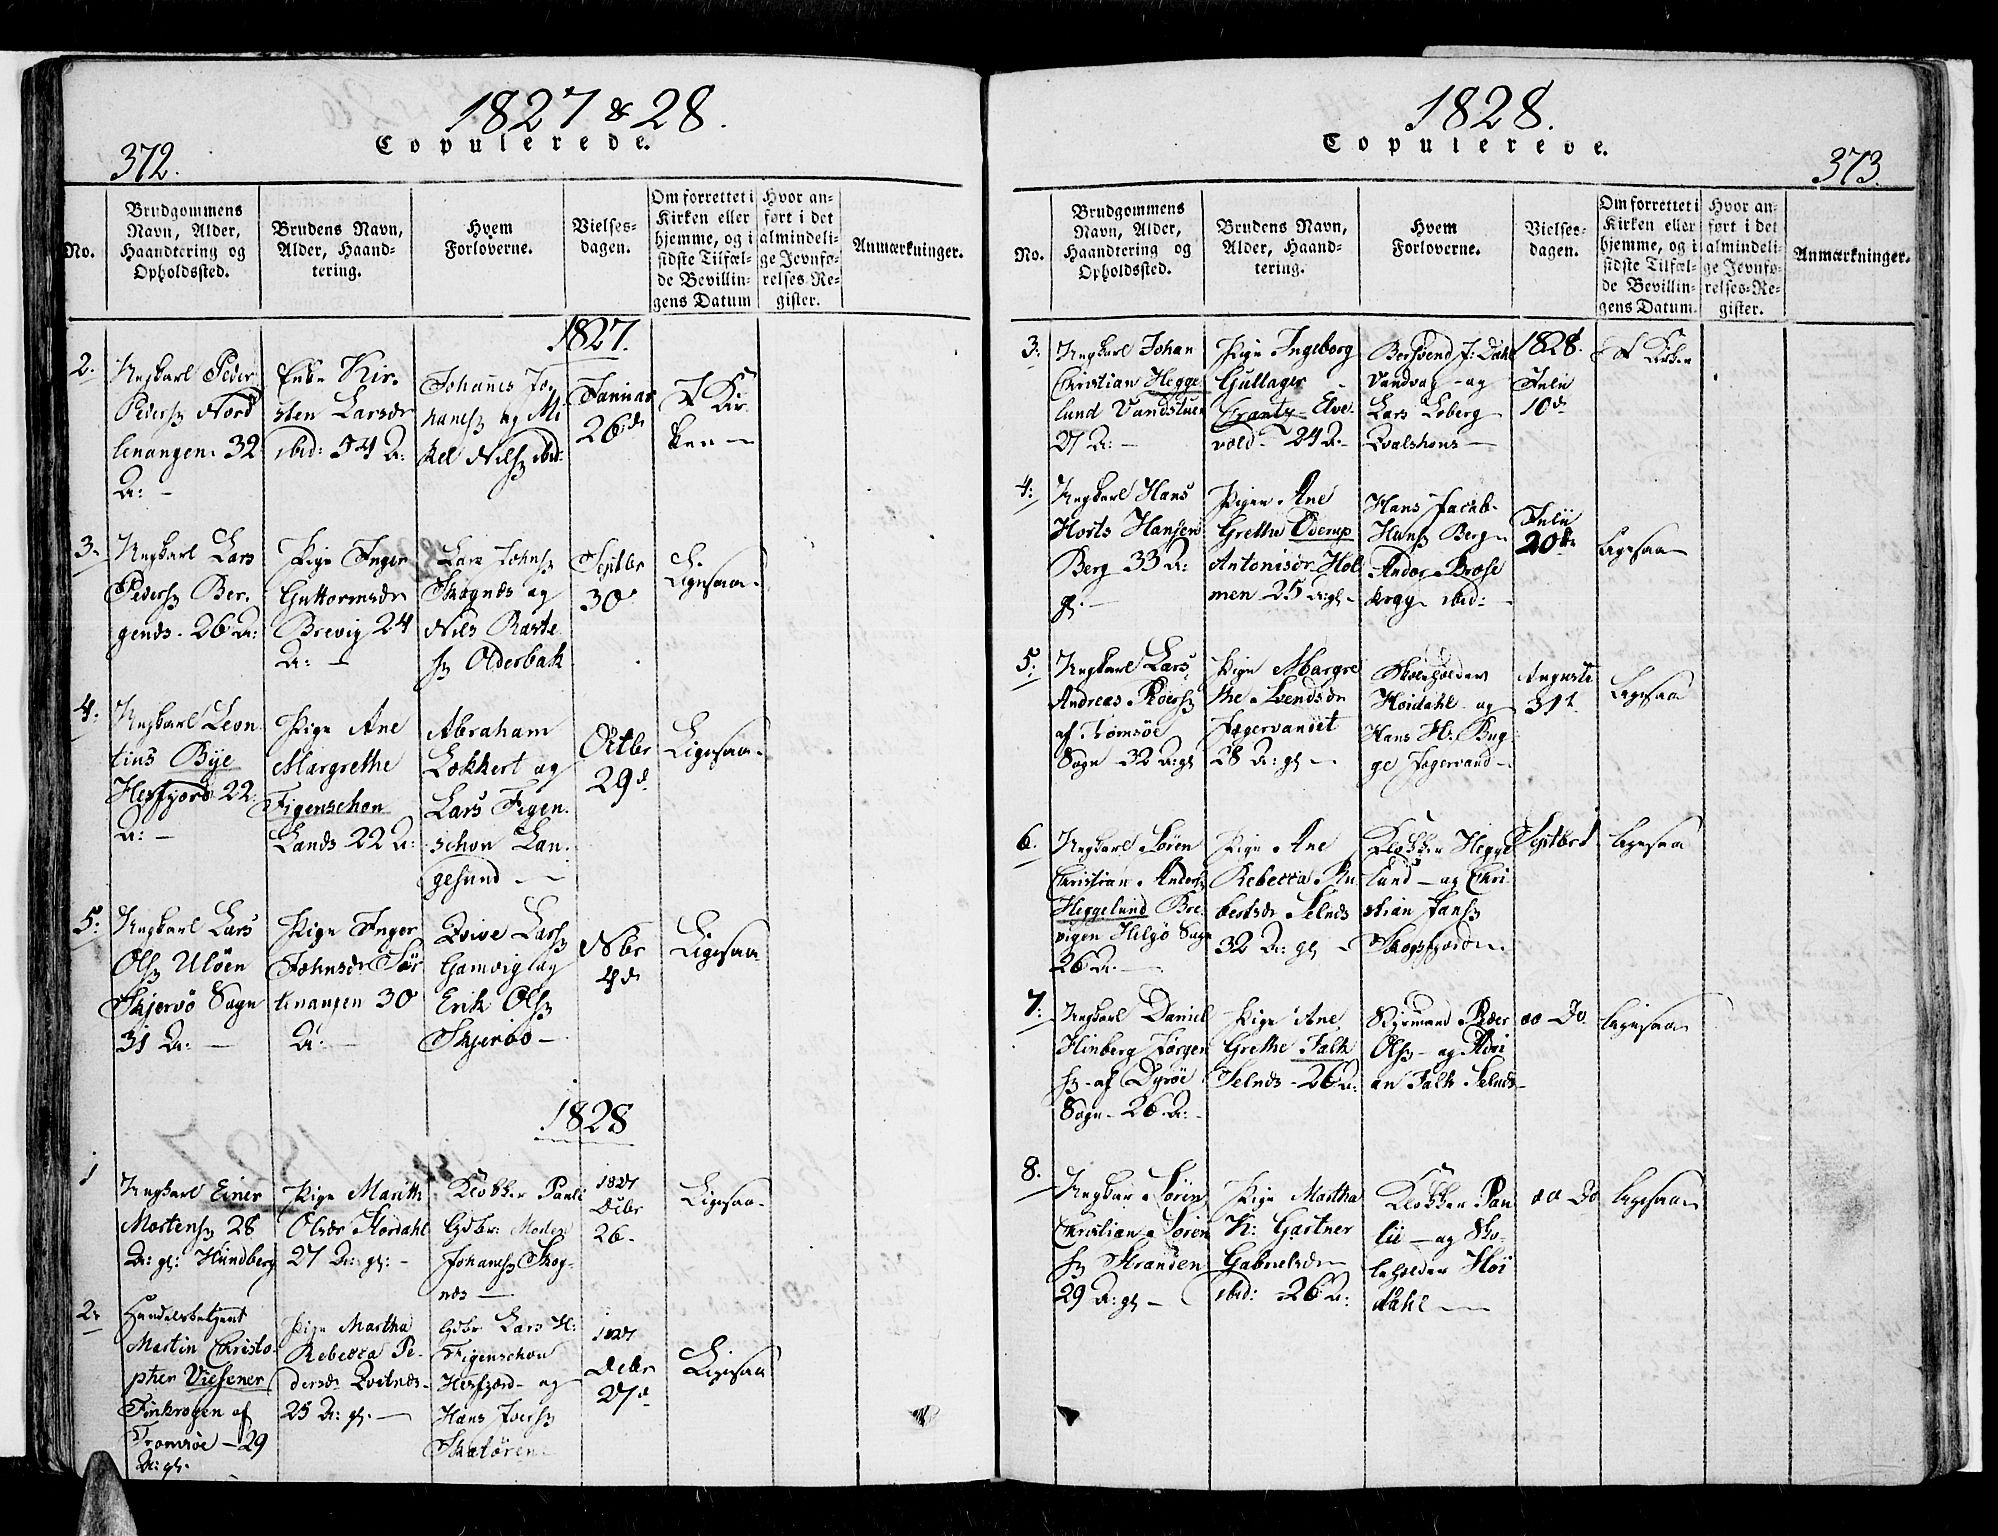 1827 & 28.
372.
Copulerede.
No.
Brudgommens Navn, Alder, Haandtering og Opholdssted.
Brudens Navn, Alder, Haandtering.
Hvem Forloverne.
Vielsesdagen.
Om forrettet i Kirken eller hjemme, og i sidste Tilfælde Bevillingens Datum
Hvor anført i det almindelige Jevnførelses-Register.
Anmærkninger.
1827.
2.
Ungkarl Peder
Peders Nord
lenangen 32
A:
Enke Kir-
sten Larsdr
ibid: 54 A:
Johannes Jo
hanes og Mi
kel Nils ibid:
Januar
26de
I Kir
ken
3.
Ungkarl Lars
Peders Ber-
gends 26 A:
Pige Inger
Guttormsdr
Brevig 24
A:
Lars Johns
Skognæs og
Nils Raste
s Olderbak
Septbr
30
Ligesaa
4.
Ungkarl Leon
tius Bye
Hesfjord 22
A:
Pige Ane
Margrethe
Figenschou
Lands 22 A:
Abraham
Lokkert og
Lars Figen
schou Lan
gesund
Octbr
29d
Ligesaa
5.
Ungkarl Lars
Ols Uløen
Skjervø Sogn
31 A:
Pige Inger
Johnsdr Sør
lenangen 30
A:
Qvive Lars
Gamvig og
Erik Ols
Skjervø
Nbr
4de
Ligesaa
1828
1
Ungkarl Einer
Mortens 28
A: gl: Hundberg
Pige Marith
Olsdr Stordahl
27 A: gl:
Klokker Pauli
Gdbr: Moden
Johanes Skog
næs
1827
Decbr
26
Ligesaa
2.
Handelsbetjent
Martin Christo-
pher Viesener
Finkrogen af
Tromsøe 29
A: gl.
Pige Martha
Rebecca Pe-
dersdr Qvitnæs
25 A: gl.
Gdbr Lars H:
Figenschou
Hesfjord og
Hans Ivers
Skatøren
1827
Decbr
27d
Ligesaa
1828.
373.
Copulerede.
No.
Brudgommens Navn, Alder, Haandtering og Opholdssted.
Brudens Navn, Alder, Haandtering.
Hvem Forloverne.
Vielsesdagen.
Om forrettet i Kirken eller hjemme, og i sidste Tilfælde Bevillingens Datum.
Hvor anført i det almindelige Jevnførelses-Register.
Anmærkninger.
3.
Ungkarl Johan
Christian Hegge
lund Vandstuen
27 A:
Pige Ingeborg
Gullager
Crantz Elve
vold 24 A.
Berhvend J: Dahl
Vandvag og
Lars Loberg
Qvalshous
1828.
Julii
10de
I Kirken
4.
Ungkarl Hans
Horts Hansen
Berg 33 A:
gl.
Pigen Ane
Grethe Oderup
Antonisdr Hol
men 25 A: gl
Hans Jacob
Hans Berg
Andor Brose
Krog ibid:
Julii
20de
Ligesaa
5.
Ungkarl Lars
Andreas Roers
af Tromsøe
Sogn 32 A: gl
Pige Margre
the Svendsdr
Fagervandet
28 A: gl
Skoleholder
Høidahl og
Hans H: Bug
ge Fagervand
Augusti
31t
Ligesaa
6.
Ungkarl Søren
Christian Anders
Heggelund Bre
vigen Helgø Sogn
26 A.
Pige Ane
Rebecca Ru
bertsdr Selnes
32 A: gl
Klokker Hegge
lund og Chri
stian Jans
Skogsfjord
Septbr 1
Ligesaa
7.
Ungkarl Daniel
Hinberg Jørgen
s af Dyrøe
Sogn 26 A:
Pige Ane
Grethe Falk
Selnæs 26 A:
Styrmand Peder
Ols og Adri
an Falk Selnæs
Do
Ligesaa
8.
Ungkar Søren
Christian Søren
s Stranden
29 A: gl
Pige Martha
K: Gartner
Gabrielsdr
ibid: 26 A:
Klokker Pau
lii og Sko-
leholder Høi
dahl
Do
Ligesaa